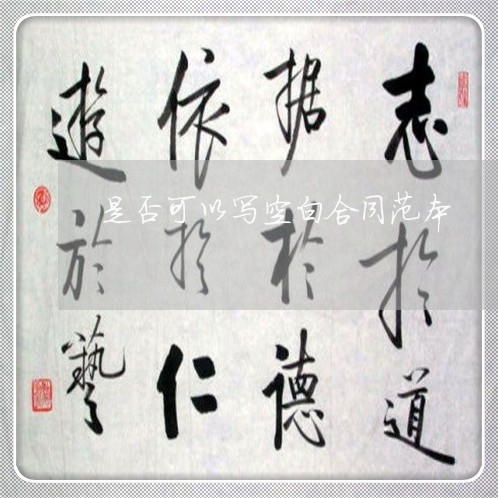 志於道
据於德
依於仁
遊於藝
是否可以写空白合同范本